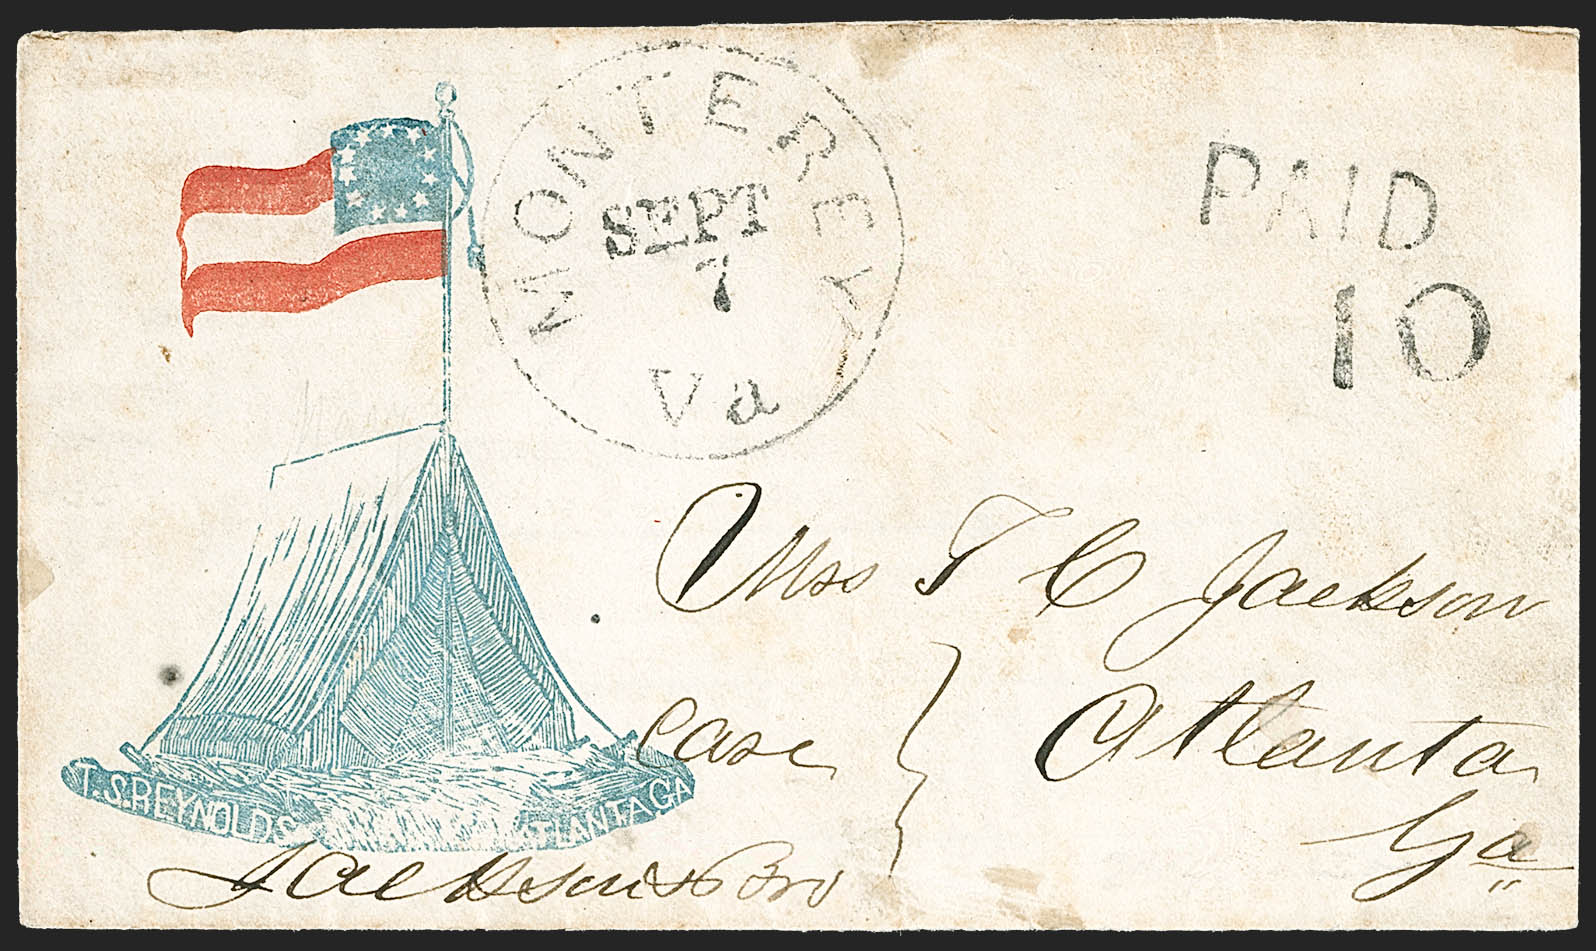 MONTEREY
SEPT
7
Va
PAID
10
Miss T C Jackson
Care } Atlanta
Ga
T.S. REYNOLDS ATLANTA GA
Jackson & Bro